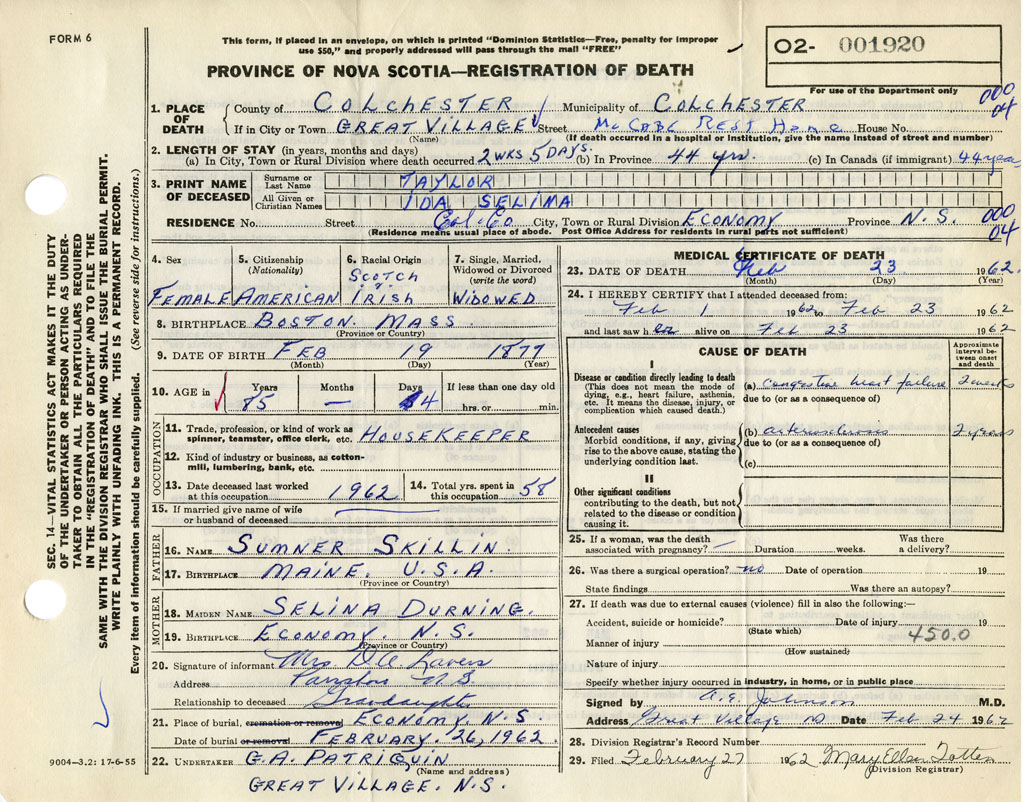 FORM 6
This form, if placed in an envelope, on which is printed "Dominion Statistics—Free, penalty for improper
use $50," and properly addressed will pass through the mail "FREE"
PROVINCE OF NOVA SCOTIA—REGISTRATION OF DEATH
02- 001920
For use of the Department only
000
04
1. PLACE OF DEATH
County of COLCHESTER Municipality of COLCHESTER
If in City or Town GREAT VILLAGE Street McCabe Rest Home House No.
(Name) (If death occurred in a hospital or Institution, give the name instead of street and number)
2. LENGTH OF STAY (in years, months and days)
(a) In City, Town or Rural Division where death occurred 2 WKS 5 DAYS. (b) In Province 44 yrs. (c) In Canada (if immigrant) 44 year
3. PRINT NAME OF DECEASED
Surname or Last Name TAYLOR
All Given or Christian Names IDA SELINA
RESIDENCE No. Street Col. Co City, Town or Rural Division ECONOMY Province N.S.
000
04
(Residence means usual place of abode. Post Office Address for residents in rural parts not sufficient)
4. Sex
FEMALE
5. Citizenship
(Nationality)
AMERICAN
6. Racial Origin
SCOTCH
IRISH
7. Single, Married,
Widowed or Divorced
(write the word)
WIDOWED
8. BIRTHPLACE BOSTON. MASS.
(Province or Country)
9. DATE OF BIRTH FEB 19 1877
(Month) (Day) (Year)
10. AGE in
Years Months Days If less than one day old
85 — 4 hrs. or min.
OCCUPATION
11. Trade, profession, or kind of work as
spinner, teamster, office clerk, etc. HOUSEKEEPER
12. Kind of industry or business, as cotton-
mill, lumbering, bank, etc.
13. Date deceased last worked
at this occupation 1962
14. Total yrs. spent in
this occupation 58
15. If married give name of wife
or husband of deceased
FATHER
16. NAME SUMNER SKILLIN.
17. BIRTHPLACE MAINE. U.S.A.
(Province or Country)
MOTHER
18. MAIDEN NAME SELINA DURNING.
19. BIRTHPLACE ECONOMY. N.S.
(Province or Country)
20. Signature of informant Mrs D. A. Lavers
Address N.S.
Relationship to deceased Grandaughter
21. Place of burial, cremation or removal ECONOMY. N.S.
Date of burial or removal FEBRUARY. 26, 1962.
22. UNDERTAKER G.A. PATRIQUIN
(Name and address)
GREAT VILLAGE. N.S.
MEDICAL CERTIFICATE OF DEATH
23. DATE OF DEATH Feb 23 1962.
(Month) (Day) (Year)
24. I HEREBY CERTIFY that I attended deceased from:
Feb 1 1962 to Feb 23 1962
and last saw her alive on Feb 23 1962
CAUSE OF DEATH
Approximate interval between onset and death
I
Disease or condition directly leading to death
(This does not mean the mode of
dying, e.g., heart failure, asthenia,
etc. It means the disease, injury, or
complication which caused death.)
(a) congestive heart failure 2 weeks
due to (or as a consequence of)
Antecedent causes
Morbid conditions, if any, giving
rise to the above cause, stating the
underlying condition last.
(b) arteriosclerosis 2 years
due to (or as a consequence of)
(c)
II
Other significant conditions
contributing to the death, but not
related to the disease or condition
causing it.
25. If a woman, was the death
associated with pregnancy? — Duration weeks. Was there
a delivery?
26. Was there a surgical operation? no Date of operation 19
State findings Was there an autopsy?
27. If death was due to external causes (violence) fill in also the following:—
Accident, suicide or homicide? Date of injury 19
(State which)
450.0
Manner of injury
(How sustained)
Nature of injury
Specify whether injury occurred in industry, in home, or in public place
Signed by A. E. Johnson M.D.
Address Great Village NS Date Feb 24 1962
28. Division Registrar's Record Number
29. Filed February 27 1962 Mary Ellen Totten
(Division Registrar)
SEC. 14—VITAL STATISTICS ACT MAKES IT THE DUTY
OF THE UNDERTAKER OR PERSON ACTING AS UNDER-
TAKER TO OBTAIN ALL THE PARTICULARS REQUIRED
IN THE "REGISTRATION OF DEATH" AND TO FILE THE
SAME WITH THE DIVISION REGISTRAR WHO SHALL ISSUE THE BURIAL PERMIT.
WRITE PLAINLY WITH UNFADING INK. THIS IS A PERMANENT RECORD.
Every item of information should be carefully supplied. (See reverse side for instructions.)
9004—3.2: 17-6-55